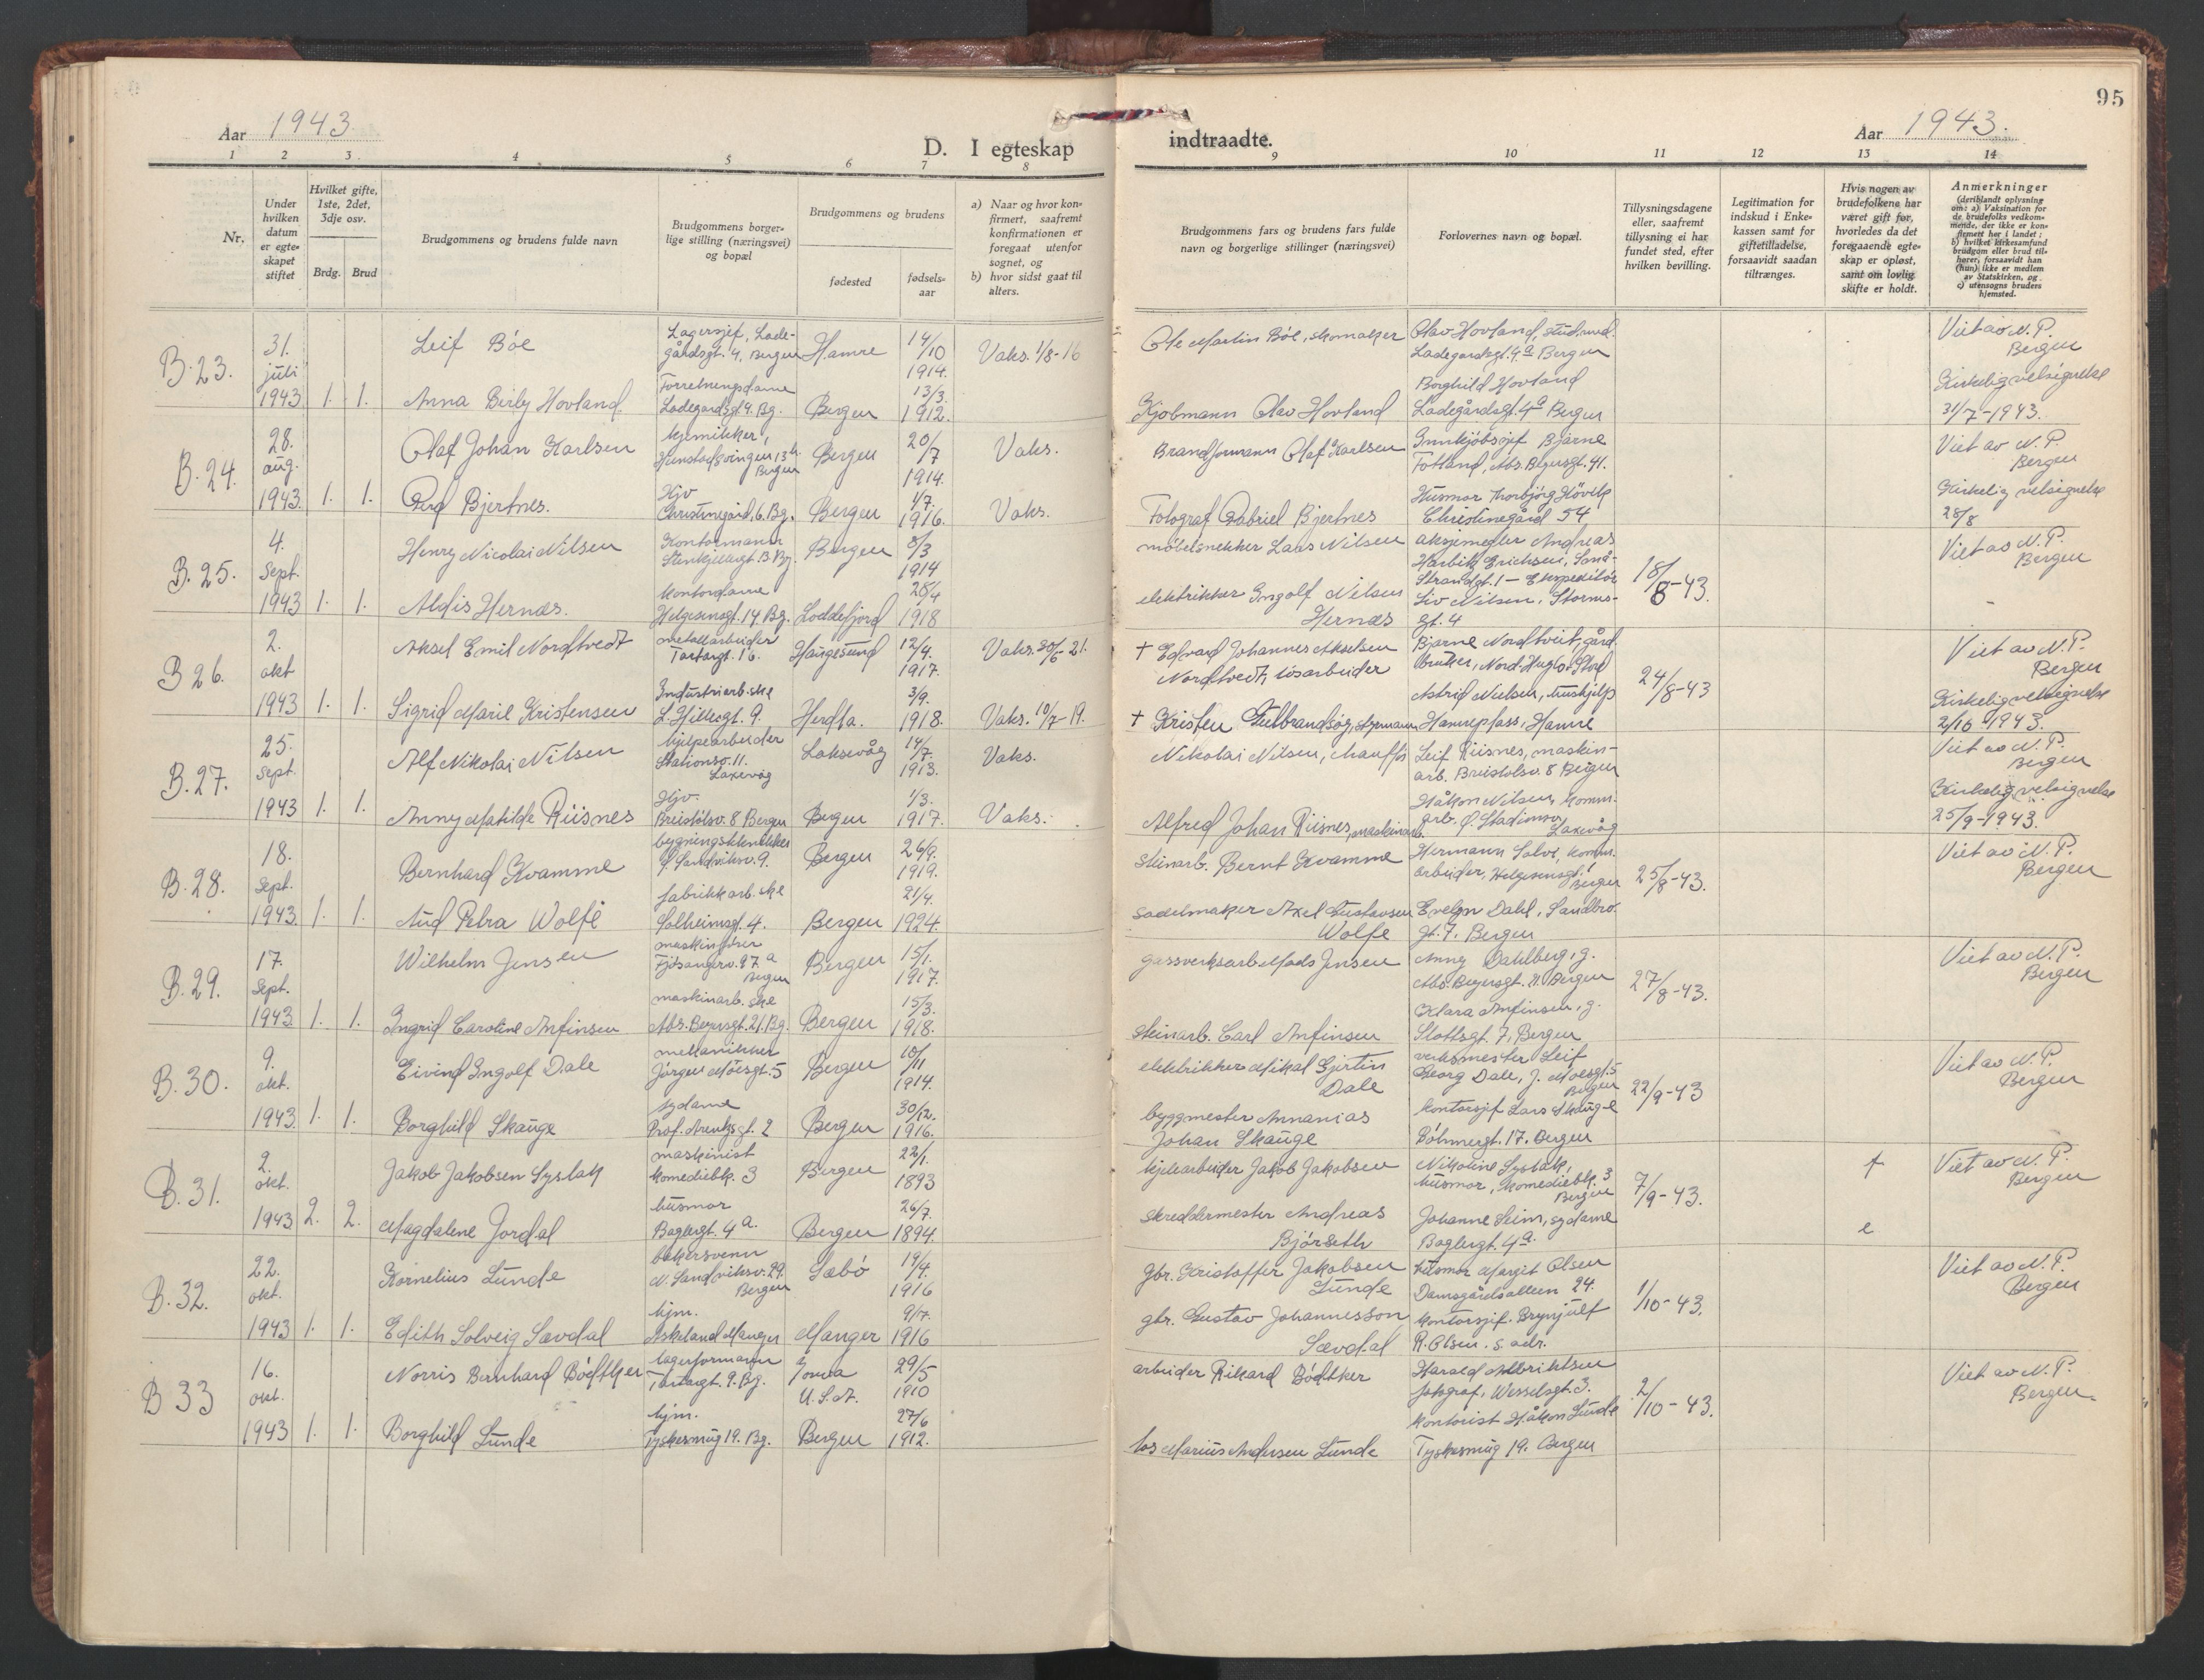 95
Aar 1943
D. I egteskap
indtraadte.
Aar 1943.
1 2 3 4 5 6 7 8 9 10 11 12 13 14
Nr.
Under hvilken datum er egteskapet stiftet
Hvilket gifte, 1ste, 2det, 3dje osv.
Brdg. Brud
Brudgommens og brudens fulde navn
Brudgommens borgerlige stilling (næringsvei) og bopæl
Brudgommens og brudens
fødested
fødselsaar
a) Naar og hvor konfirmert, saafremt konfirmationen er foregaat utenfor sognet, og
b) hvor sidst gaat til alters.
Brudgommens fars og brudens fars fulde navn og borgerlige stillinger (næringsvei)
Forlovernes navn og bopæl.
Tillysningsdagene eller, saafremt tillysning ei har fundet sted, efter hvilken bevilling.
Legitimation for indskud i Enkekassen samt for giftetilladelse, forsaavidt saadan tiltrænges.
Hvis nogen av brudefolkene har været gift før, hvorledes da det foregaaende egteskap er opløst, samt om lovlig skifte er holdt.
Anmerkninger
(deriblandt oplysning om: a) Vaksination for de brudefolks vedkommende, der ikke er konfirmert her i landet; b) hvilket kirkesamfund brudgom eller brud tilhører, forsaavidt han (hun) ikke er medlem av Statskirken, og c) utensogns bruders hjemsted.
B. 23. 31. juli 1943 1. 1.
Leif Böe
Lagersjef, Ladegårdsgt. 4, Bergen
Hamre
14/10 1914.
Vaks. 1/8-16
Ole Martin Böe, skomaker
Olav Hovland, stud.med.
Ladegardsgt. 4a Bergen
Viet av N. P.
Bergen
Anna Berly Hovland
Forretningsdame
Ladegardsgt. 4. Bg.
Bergen
13/3. 1912.
Kjøbmann Olav Hovland
Borghild Hovland
Ladegårdsgt. 4a Bergen
Kirkelig velsignelse
31/7-1943.
B. 24. 28. aug. 1943 1. 1.
Olaf Johan Karlsen
kjemikker,
Bergen
Bergen
20/7 1914.
Vaks.
Brandformann Olaf Karlsen
Innkjöbsjef Bjarne
Totland, Abs. Beyersgt. 41.
Viet av N. P.
Bergen
Gerd Bjertnes.
Hjv
Christinegård, 6. Bg.
Bergen
1/7. 1916.
Vaks.
Fotograf Gabriel Bjertnes
Husmor Thorbjörg Hövik
Christinegård 54
Kirkelig velsignelse
28/8
B. 25. 4. Sept. 1943 1. 1.
Henry Nicolai Nilsen
Kontormann
Bergen
8/3 1914
möbelsnekker Laas Nilsen
aksjemegler Andreas
Harbitz Erichsen, Små-
Strandgt. 1 - Ekspeditör
18/8-43.
Viet av N. P.
Bergen
Aldis Hernæs.
kontordame
Helgesensgt. 14 Bg.
Loddefjord
28/4 1918
elektrikker Ingolf Nilsen
Hernæs
Liv Nilsen, Storms-
gt. 4
B 26. 2. okt 1943 1. 1.
Aksel Emil Nordtvedt
metallarbeider
Tartargt. 16.
Haugesund
12/4. 1917.
Vaks. 30/5-21.
† Edvard Johannes Akselsen
Nordtvedt, lösarbeider
Bjarne Nordtveit, gård-
bruker, Nord-Huglo, Stord
24/8-43
Viet av N. P.
Bergen
Sigrid Marie Kristensen
Industriarb.ske
L. Hillesgt. 9.
Herdla.
3/9. 1918.
Vaks. 10/7-19.
† Kristen Gulbrandsøy, styrmann
Astrid Nielsen, hushjelp
Hanneplass, Hamre
Kirkelig velsignelse
2/10 1943.
B. 27. 25. Sept. 1943 1. 1.
Alf Nikolai Nilsen
hjelpearbeider
Stationsv. 11.
Laxevåg
Laksevåg
14/7. 1913.
Vaks.
Nikolai Nilsen, chauffør
Leif Riisnes, maskin-
arb. Breistølsv. 8 Bergen
Viet av N. P.
Bergen
Anny Matilde Riisnes
Hjv.
Breistölsv. 8 Bergen
Bergen
1/3. 1917.
Vaks.
Alfred Johan Riisnes, maskinarb.
Håkon Nilsen, komm.
arb. Ö. Stadionsv.
Laxevåg
Kirkelig velsignelse
25/9-1943.
B. 28. 18. Sept. 1943 1. 1.
Bernhard Kvamme
bygningstekniker
Ö. Sandviksv. 9.
Bergen
26/9. 1919.
steinarb. Bernt Kvamme
arbeider, Helgesensgt.
Bergen
25/8-43.
Viet av N. P.
Bergen
Aud Petra Wolfe
fabrikkarb.ske
Solheimsgt. 4.
Bergen
21/4. 1924.
sadelmaker Axel Gustavsen
Wolfe
Evelyn Dahl, Sandbro-
gt. 7. Bergen
B. 29. 17. Sept. 1943 1. 1.
Wilhelm Jensen
maskinfører
Fjösangerv. 97 a
Bergen
Bergen
15/1. 1917.
gassverksarb. Mads Jensen
Anny Dahlberg, g.
Abs. Beyersgt. 21. Bergen
27/8-43.
Viet av N. P.
Bergen
Ingrid Caroline Anfinsen
maskinarb. ske
Abs. Beyersgt. 21. Bg.
Bergen
15/3. 1918.
steinarb. Carl Anfinsen
Klara Anfinsen, g.
Slottsgt. 7. Bergen
B. 30. 9. okt. 1943 1. 1.
Eivind Ingolf Dale
mekanikker
Jörgen Moesgt. 5
Bergen
10/11 1914.
elektrikker Mikal Gjertin
Dale
verksmester Leif
Georg Dale, J. Moesgt. 5
Bergen
22/9-43
Viet av N. P.
Bergen
Borghild Skauge
sydame
Prof. Arentzgt. 2
Bergen
30/12. 1916.
byggmester Annanias
Johan Skauge
kontorsjef Lars Skauge
Böhmergt. 17. Bergen
B. 31. 2. okt. 1943 2. 2.
Jakob Jakobsen Syslak
maskinist
komediebk. 3
Bergen
22/1. 1893
kjelearbeider Jakob Jakobsen
Nikoline Syslak,
husmor, komediebk. 3
Bergen
7/9-43.
†
Viet av N. P.
Bergen
Magdalene Jordal
husmor
Baglergt. 4a.
Bergen
26/7. 1894.
skreddermester Andreas
Björseth
Johanne Seim, sydame
Baglergt. 4a.
e
B. 32. 22. okt. 1943 1. 1.
Kornelius Lunde
bakersvenn
N. Sandviksv. 29.
Bergen
Sæbö
19/4. 1916
gbr. Kristoffer Jakobsen
Lunde
husmor Margit Olsen
Damsgårdsalleen 24.
1/10-43.
Viet av N. P.
Bergen
Edith Solveig Sævdal
hjm.
Askeland Manger
Manger
9/7. 1916
gbr. Gustav Johannesson
Sævdal
kontorsjef. Brynjulf
R. Olsen. s. adr.
B 33 16. okt. 1943 1. 1.
Norris Bernhard Bödtker
lagerformann
Tartargt. 9. Bg.
Iowa
U.S.A.
29/5 1910
arbeider Rikard Bödtker
Harald Albriktsen
fotograf, Wesselsgt. 3.
2/10-43.
Viet av N. P.
Bergen.
Borghild Lunde
hjm.
Tyskesmug 19. Bg.
Bergen
27/6 1912.
los Marius Andersen Lunde
kontorist Håkon Lunde
Tyskesmug 19. Bergen